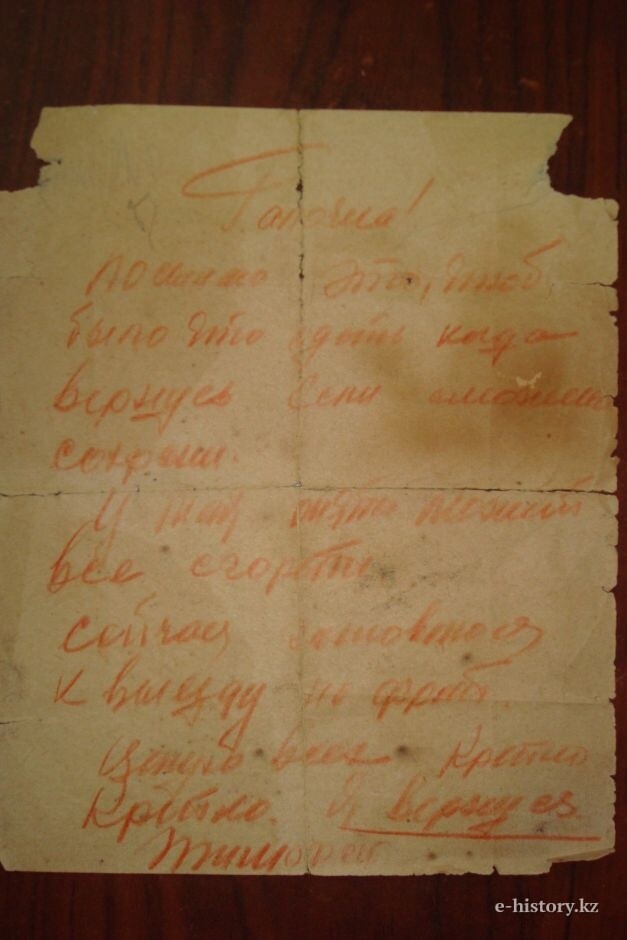 Галочка!
это, чтоб
было что одеть когда
вернусь Если сможешь
сохрани.
У
все сгорели
Сейчас готовимся
к выезду на фронт.
Целую всех Крепко
Крепко. Я вернусь.
Тимофей
e-history.kz